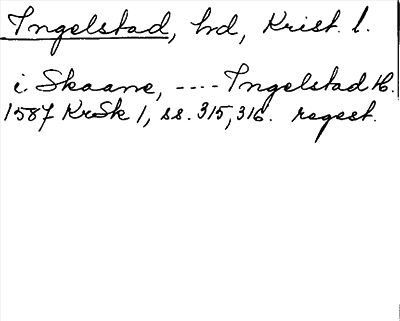 Ingelstad, hd, Krist. l.
i Skaane, ---- Ingelstad H.
1587 KrSk 1, ss. 315, 316. regest.